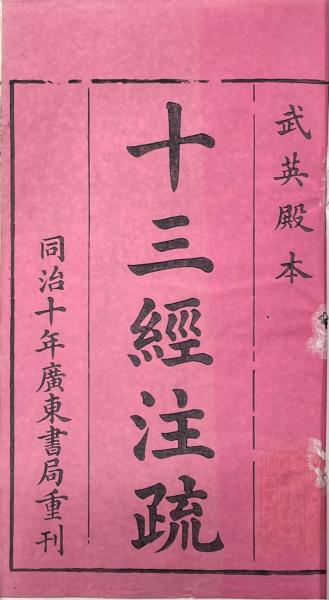 武英殿本
十三經注疏
同治十年廣東書局重刊